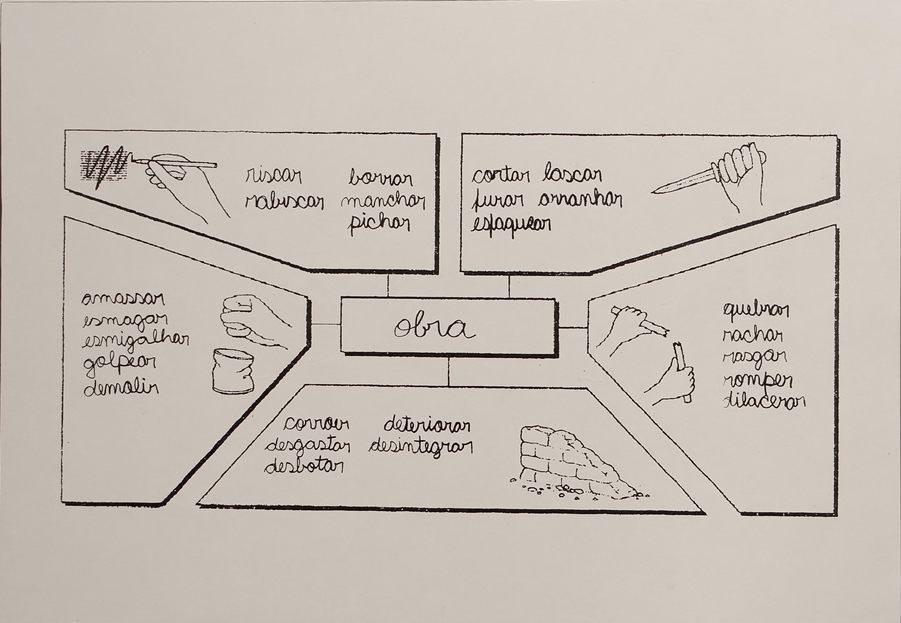 riscar borrar
rabiscar manchar
pichar
cortar lascar
furar arranhar
esfaquear
amassar
esmagar
esmigalhar
golpear
demolir
obra
quebrar
rachar
rasgar
romper
dilacerar
corroer deteriorar
desgastar desintegrar
desbotar